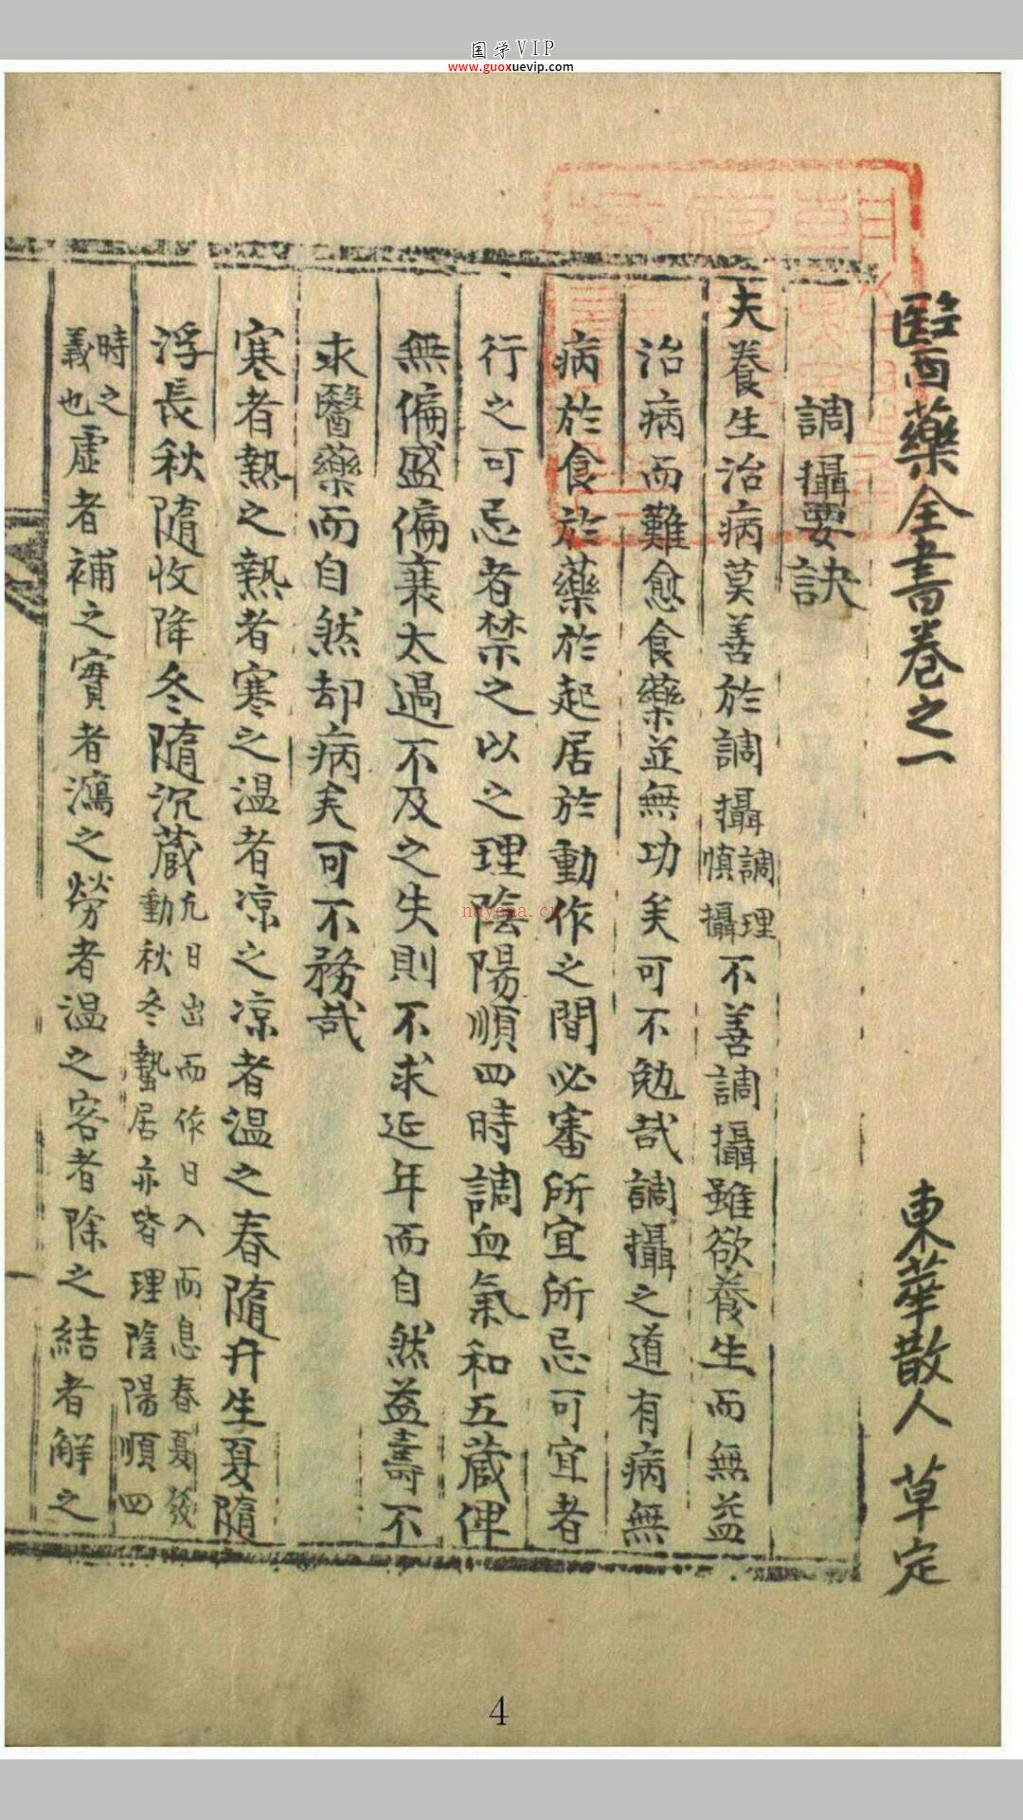 国学VIP
www.guoxuevip.com
醫藥全書卷之一 東華散人 草定
調攝要訣
夫養生治病莫善於調攝調理慎攝不善調攝雖欲養生而無益
治病而難愈食藥並無功矣可不勉哉調攝之道有病無
病於食於藥於起居於動作之間必審所宜所忌可宜者
行之可忌者禁之以之理陰陽順四時調血氣和五蔵俾
無偏盛偏衰太過不及之失則不求延年而自然益壽不
求醫藥而自然却病矣可不務哉
寒者熱之熱者寒之温者凉之凉者温之春隨升生夏隨
浮長秋隨收降冬隨沉蔵凡日出而作日入而息春夏發動秋冬蟄居亦皆理陰陽順四
時之義也虛者補之實者瀉之勞者温之客者除之結者解之
nayona.cn
一
4